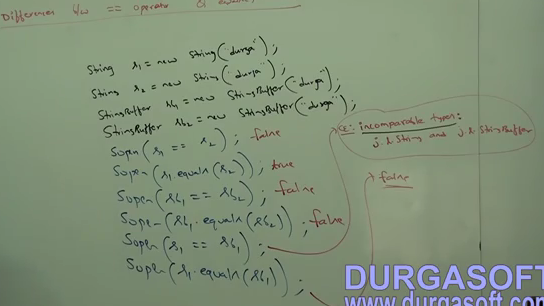 Difference b/w == operator & equals
String s1 = new String("durga");
String s2 = new String("durga");
StringBuffer sb1 = new StringBuffer("durga");
StringBuffer sb2 = new StringBuffer("durga");
Sopln(s1 == s2); false
Sopln(s1.equals(s2)); true
Sopln(sb1 == sb2); false
Sopln(sb1.equals(sb2)); false
Sopln(s1 == sb1);
Sopln(s1.equals(sb1));
CE: incomparable types:
j.l.String and j.l.StringBuffer
false
DURGASOFT
www.durgasoft.com